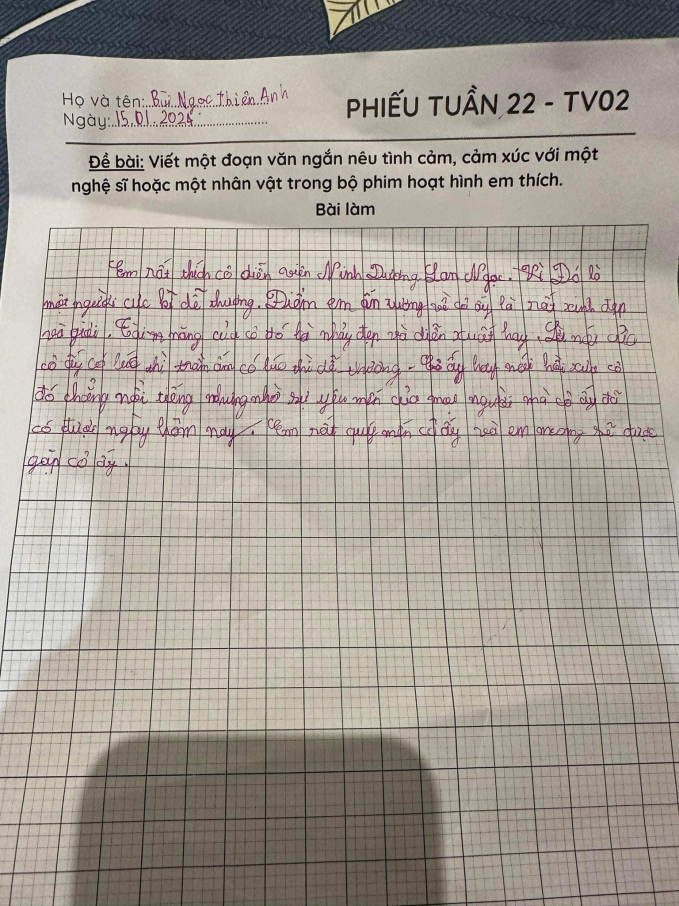 Họ và tên: Bùi Ngọc Thiên Anh
PHIẾU TUẦN 22 - TV02
Ngày: 15.01.2024
Đề bài: Viết một đoạn văn ngắn nêu tình cảm, cảm xúc với một
nghệ sĩ hoặc một nhân vật trong bộ phim hoạt hình em thích.
Bài làm
Em rất thích cô diễn viên Ninh Dương Lan Ngọc. Vì Đó là
một người cực kì dễ thương. Điểm em ấn tượng về cô ấy là rất xinh đẹp
và giỏi. Tài năng của cô đó là nhảy đẹp và diễn xuất hay. nói của
cô ấy có lúc thì trầm ấm có lúc thì dễ thương. Cô ấy hay nói
đó chẳng nổi tiếng nhưng nhờ sự yêu mến của mọi người mà cô ấy đã
có được ngày hôm nay. Em rất quý mến cô ấy và em mong sẽ được
gặp cô ấy.